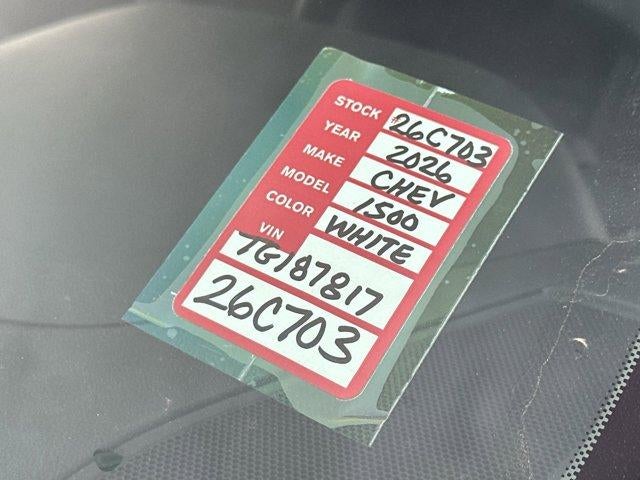 STOCK #26C703
YEAR 2026
MAKE CHEV
MODEL 1500
COLOR WHITE
VIN
TG187817
26C703